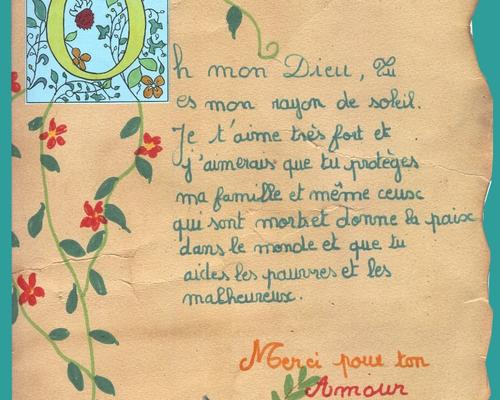 Oh mon Dieu, Tu
es mon rayon de soleil.
Je t'aime très fort et
j'aimerais que tu protèges
ma famille et même ceux
qui sont morts et donne la paix
dans le monde et que tu
aides les pauvres et les
malheureux.
Merci pour ton
Amour